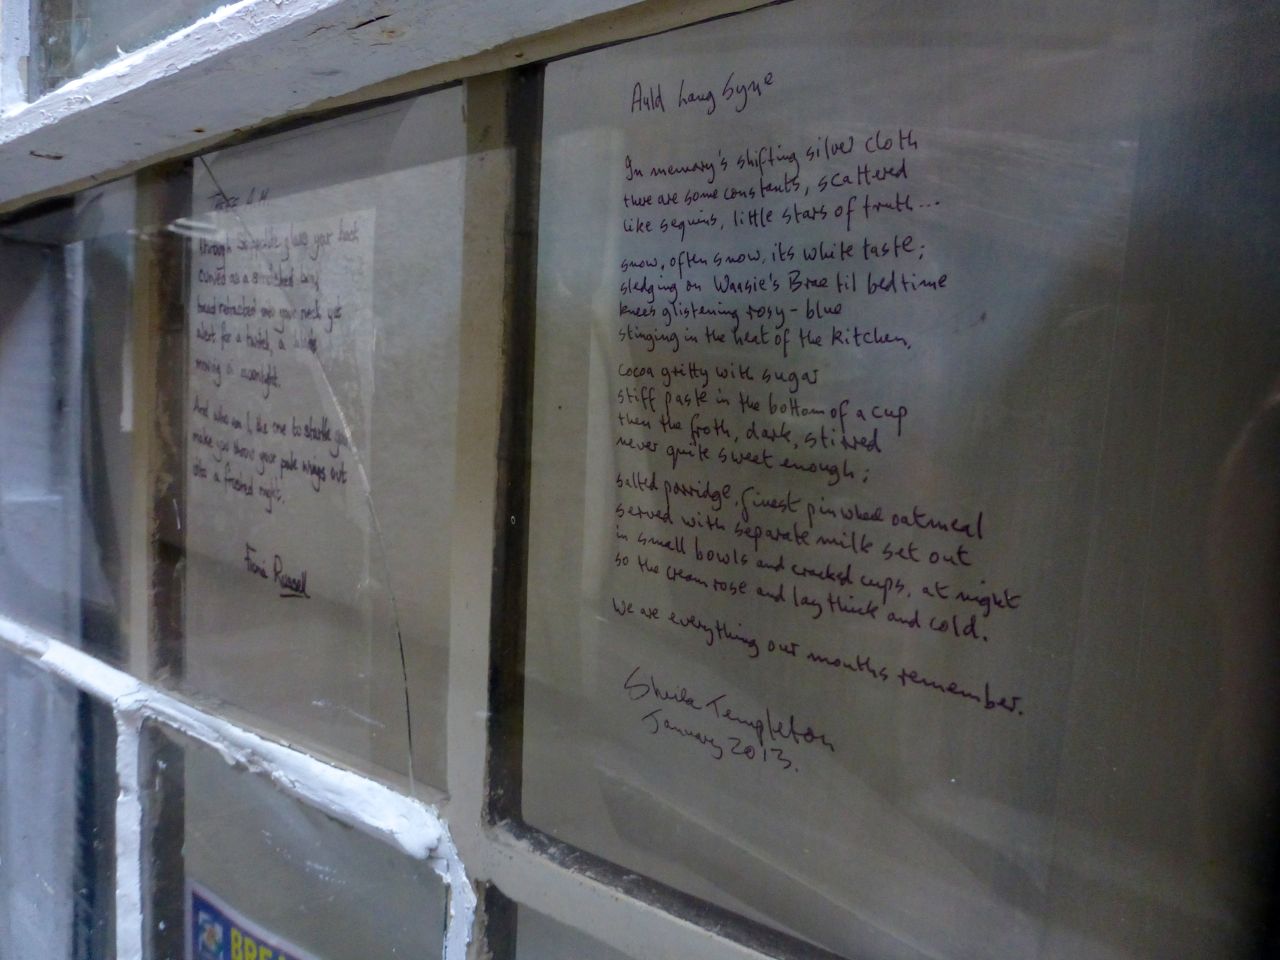 through separate glass your
curved as a
head retracted into your neck yet
alert for a twitch, a
moving in moonlight.
And who am I, the one to startle you
make you throw your pale wings out
into a frosted night.
Fiona Russell
BRE
Auld Lang Syne
In memory's shifting silver cloth
there are some constants, scattered
like sequins, little stars of truth...
snow, often snow, its white taste;
sledging on Waasie's Brae til bedtime
knees glistening rosy-blue
stinging in the heat of the kitchen,
cocoa gritty with sugar
stiff paste in the bottom of a cup
then the froth, dark, stirred
never quite sweet enough;
salted porridge, finest pinwheel oatmeal
served with separate milk set out
in small bowls and cracked cups, at night
so the cream rose and lay thick and cold.
We are everything our mouths remember.
Sheila Templeton
January 2013.